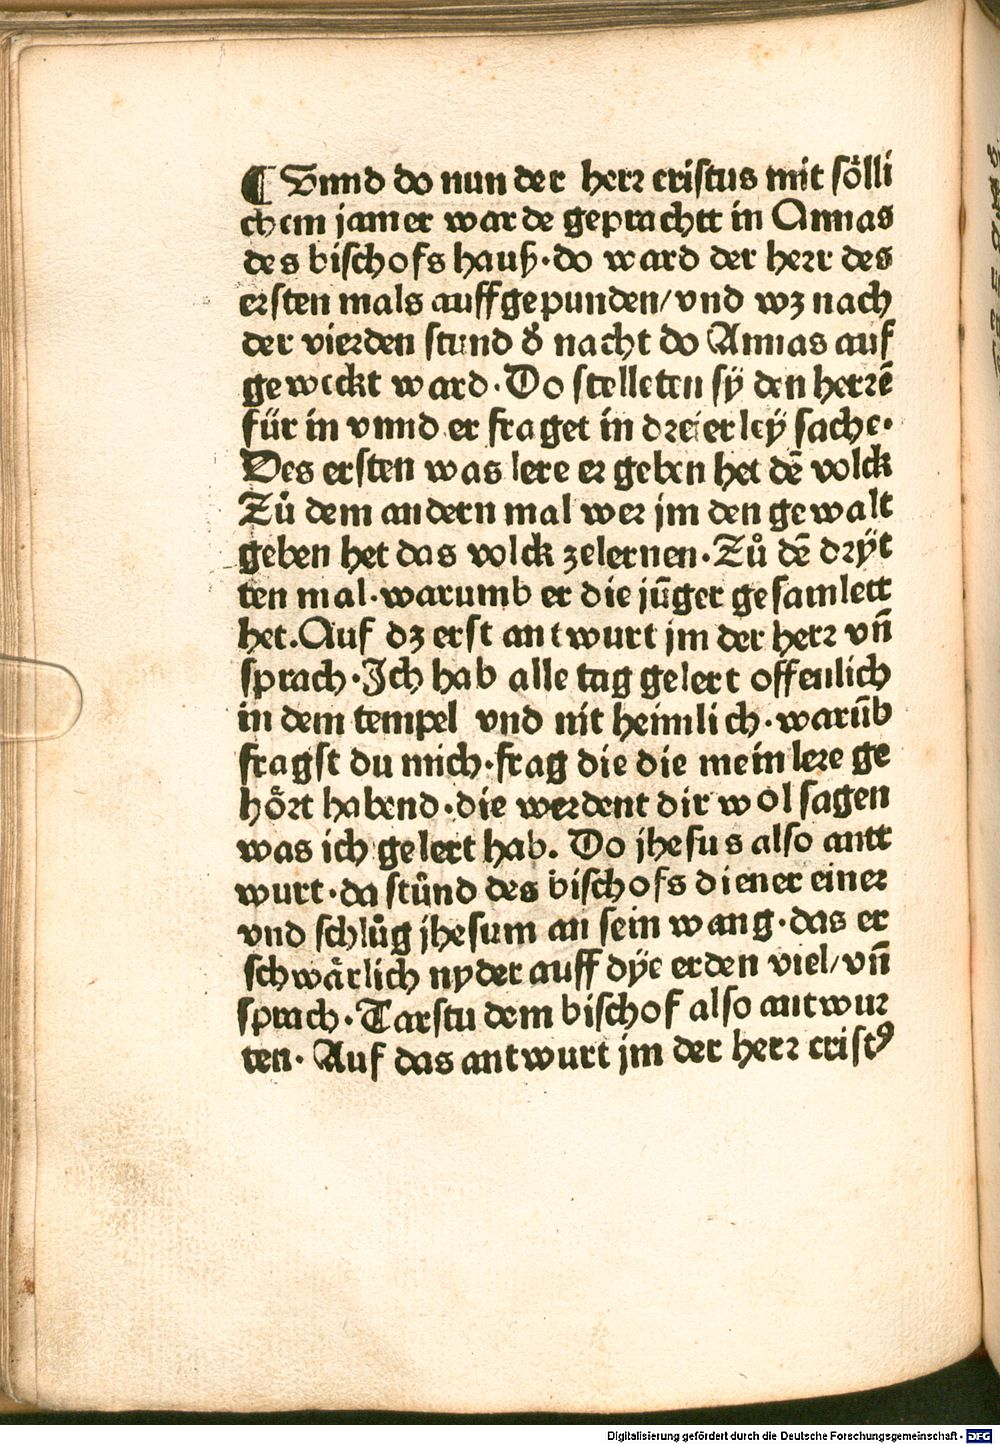 ¶ Vnnd do nun der herꝛ cristus mit sölli
chem jamer warde geprachtt in Annas
des bischofs hauß·do ward der herꝛ des
erſten mals auffgepunden/vnd wʒ nach
der vierden ſtund d̕ nacht do Annas auf
geweckt ward·Do ſtelleten ſÿ den herꝛē
für in vnnd er fraget in dꝛeierleÿ ſache·
Des erſten was lere eꝛ geben het dē volck
Zů dem andern mal weꝛ jm den gewalt
geben het das volck zelernen·Zů dē dꝛÿt
ten mal·warumb er die jūger geſamlett
het.Auf dʒ erſt antwurt jm der herꝛ vn̄
ſprach·Ich hab alle tag gelert offenlich
in dem tempel vnd nit heimlich·warūb
fragſt du mich·frag die die mein leꝛe ge
höꝛt habend·die weꝛdent dir wol ſagen
was ich gelert hab. Do jheſus alſo antt
wurt·da ſtůnd des biſchofs diener eineꝛ
vnd ſchlůg jheſum an ſein wang·das er
ſchwärlich nyder auff dÿe erden viel/vn̄
ſprach·Tarſtu dem biſchof alſo antwuꝛ
ten· Auf das antwurt jm der herꝛ criſtꝰ
Digitalisierung gefördert durch die Deutsche Forschungsgemeinschaft - DFG